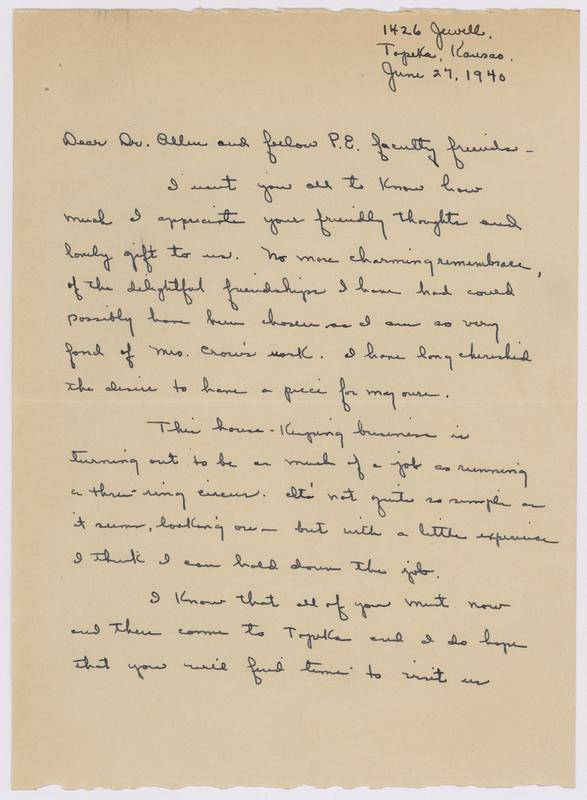 1426 Jewell,
Topeka, Kansas.
June 27, 1940
Dear Dr. Allen and fellow P.E. faculty friends -
I want you all to know how
much I appreciate your friendly thoughts and
lovely gift to us. No more charming remembrace,
of the delightful friendships I have had could
possibly have been chosen as I am so very
fond of Mrs. Crow's work. I have long cherished
the desire to have a piece for my own.
This house-keeping business is
turning out to be as much of a job as running
a three-ring circus. It's not quite so simple as
it seems, looking on - but with a little experience
I think I can hold down the job.
I know that all of you must now
and then come to Topeka and I do hope
that you will find time to visit us